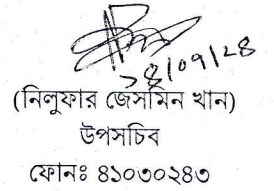 ২৪/০৭/২৪
(নিলুফার জেসমিন খান)
উপসচিব
ফোনঃ ৪১০৩০২৪৩